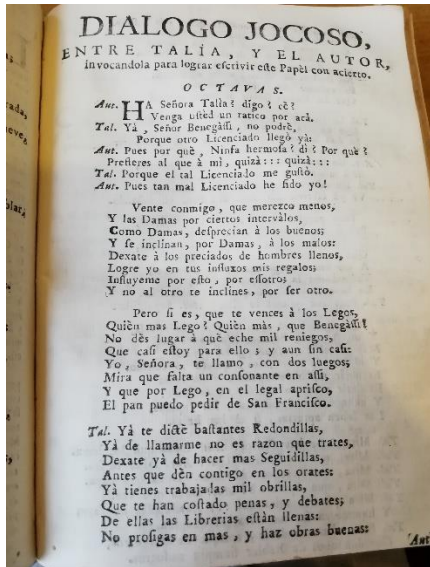 rada,
neve,
olar,
DIALOGO JOCOSO,
ENTRE TALÍA, Y EL AUTOR,
invocandola para lograr eſcrivir eſte Papèl con acierto.
OCTAVAS.
Aut. HA Señora Talìa? digo? cè?
Venga uſted un ratico por acà.
Tal. Yà, Señor Benegàſſi, no podrè,
Porque otro Licenciado llegò yà:
Aut. Pues por què, Ninfa hermoſa? dì? Por què?
Prefieres al que à mi, quizà::: quizà:::
Tal. Porque el tal Licenciado me guſtò.
Aut. Pues tan mal Licenciado he ſido yo!
Vente conmigo, que merezco menos,
Y las Damas por ciertos intervàlos,
Como Damas, deſprecian à los buenos;
Y ſe inclinan, por Damas, à los malos:
Dexate à los preciados de hombres llenos,
Logre yo en tus influxos mis regalos;
Influyeme por eſto, por eſſotro;
Y no al otro te inclines, por ſer otro.
Pero ſi es, que te vences à los Legos,
Quièn mas Lego? Quièn màs, que Benegàſſi?
No dès lugar à què eche mil reniegos,
Que caſi eſtoy para ello; y aun ſin caſi:
Yo, Señora, te llamo, con dos luegos;
Mira que falta un conſonante en aſſi,
Y que por Lego, en el legal apriſco,
El pan puedo pedir de San Franciſco.
Tal. Yà te dictè baſtantes Redondillas,
Yà de llamarme no es razon que trates,
Dexate yà de hacer mas Seguidillas,
Antes que dèn contigo en los orates:
Yà tienes trabajadas mil obrillas,
Que te han coſtado penas, y debates;
De ellas las Librerias eſtàn llenas:
No proſigas en mas, y haz obras buenas:
Aut.